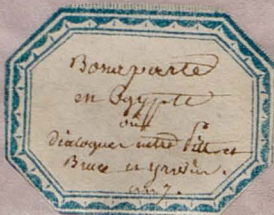 Bonaparte
en Egypte
ou
dialogue entre Pitt et
Bruce et
an 7.